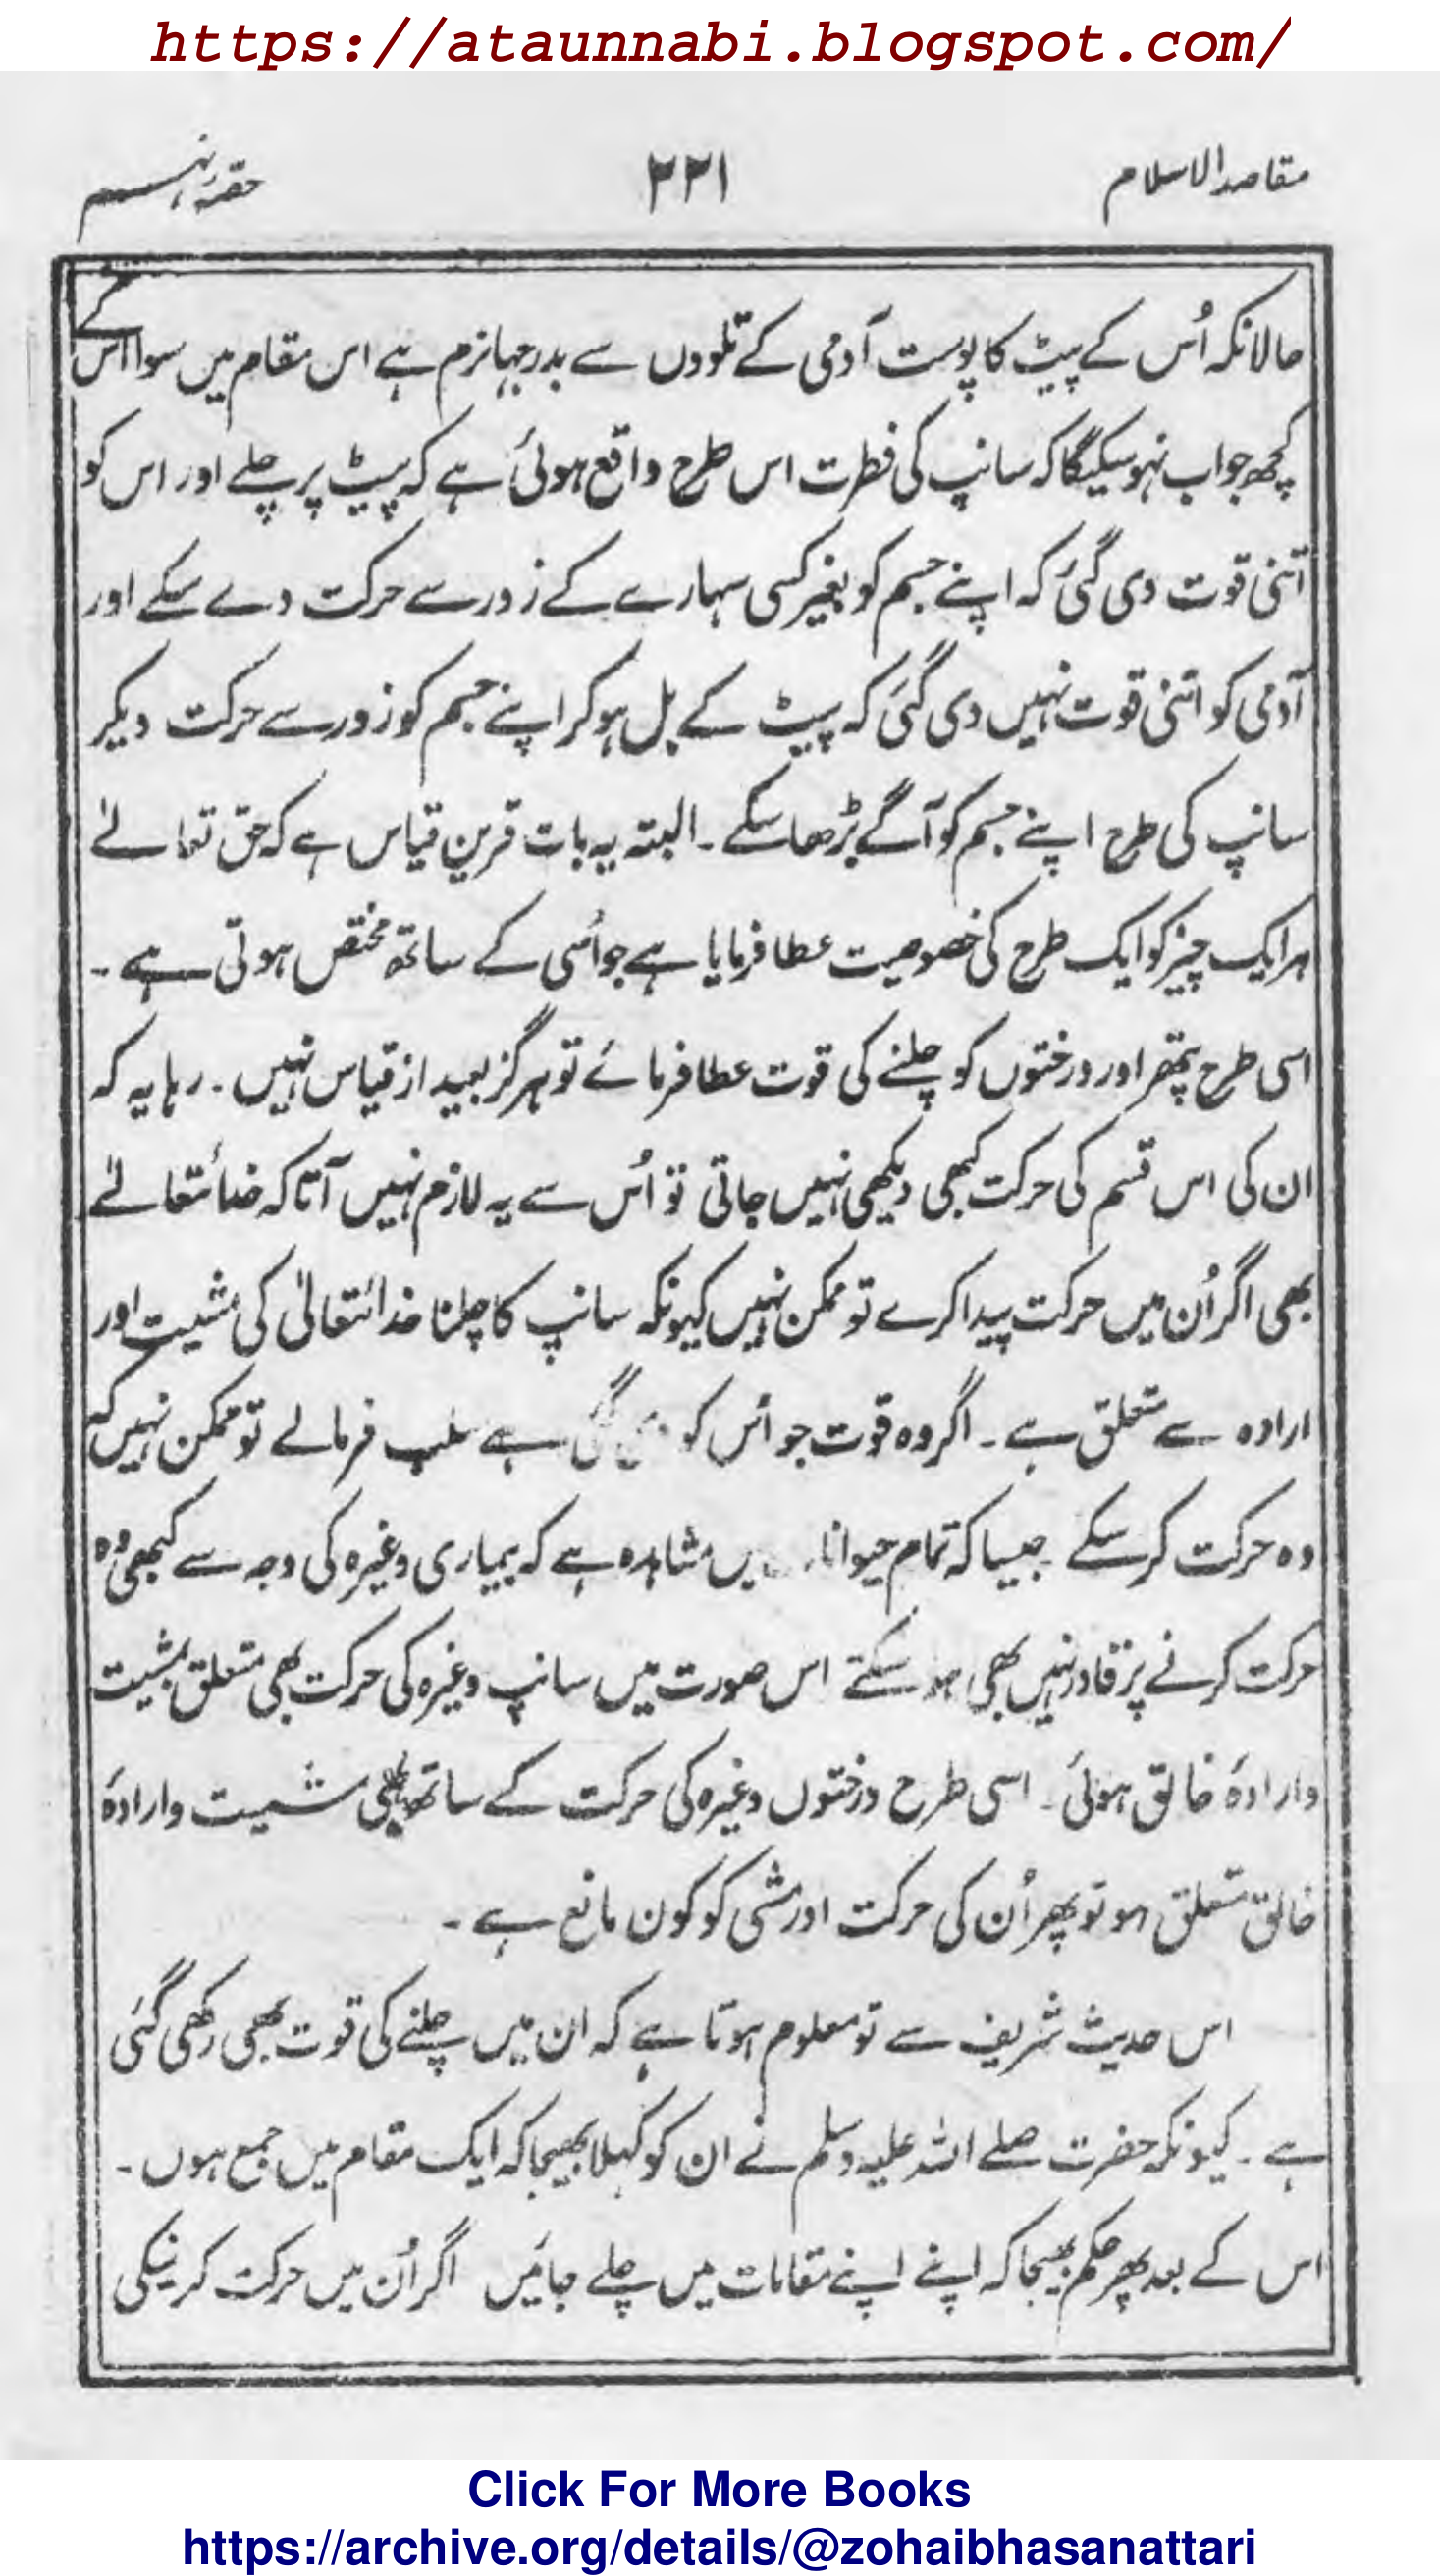 https://ataunnabi.blogspot.com/
مقاصد الاسلام ۲۲۱ حصّہ نہم
حالانکہ اُس کے پیٹ کا پوست آدمی کے تلووں سے بدرجہا نرم ہے اس مقام میں سوا اس کے
کچھ جواب نہو سکیگا کہ سانپ کی فطرت اس طرح واقع ہوئی ہے کہ پیٹ پر چلے اور اس کو
اتنی قوت دی گئی کہ اپنے جسم کو بغیر کسی سہارے کے زور سے حرکت دے سکے اور
آدمی کو اتنی قوت نہیں دی گئی کہ پیٹ کے بل ہو کر اپنے جسم کو زور سے حرکت دیکر
سانپ کی طرح اپنے جسم کو آگے بڑھا سکے ۔ البتہ یہ بات قرین قیاس ہے کہ حق تعالےٰ
ہر ایک چیز کو ایک طرح کی خصوصیت عطا فرمایا ہے جو اُسی کے ساتھ مختص ہوتی ہے ۔
اسی طرح پتھر اور درختوں کو چلنے کی قوت عطا فرمائے تو ہرگز بعید از قیاس نہیں ۔ رہا یہ کہ
ان کی اس قسم کی حرکت کبھی دیکھی نہیں جاتی تو اُس سے یہ لازم نہیں آتا کہ خدائتعالےٰ
بھی اگر اُن میں حرکت پیدا کرے تو ممکن نہیں کیونکہ سانپ کا چلنا خدائتعالیٰ کی مشیت اور
ارادہ سے متعلق ہے ۔ اگر وہ قوت جو اُس کو دی گئی ہے سلب فرمالے تو ممکن نہیں کہ
وہ حرکت کر سکے جیسا کہ تمام حیوانات میں مشاہدہ ہے کہ بیماری وغیرہ کی وجہ سے کبھی وہ
حرکت کرنے پر قادر نہیں بھی ہو سکتے اس صورت میں سانپ وغیرہ کی حرکت بھی متعلق بمشیت
وارادۂ خالق ہوئی ۔ اسی طرح درختوں وغیرہ کی حرکت کے ساتھ بھی مشیت وارادۂ
خالق متعلق ہو تو پھر اُن کی حرکت اور مشی کو کون مانع ہے ۔
اس حدیث شریف سے تو معلوم ہوتا ہے کہ ان میں چلنے کی قوت بھی رکھی گئی
ہے ۔ کیونکہ حضرت صلے اللہ علیہ وسلم نے ان کو کہلا بھیجا کہ ایک مقام میں جمع ہوں ۔
اس کے بعد پھر حکم بھیجا کہ اپنے اپنے مقامات میں چلے جائیں اگر اُن میں حرکت کرنیکی
Click For More Books
https://archive.org/details/@zohaibhasanattari